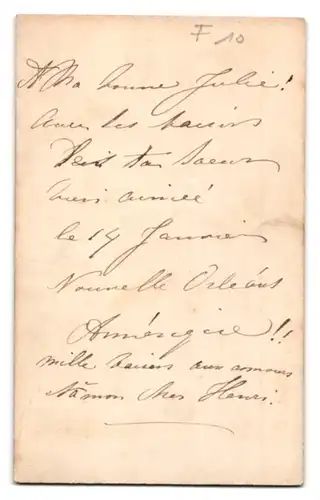 F 10
A Ma bonne Julie!
Avec les baisers
de ta Soeur
bien aimée
le 14 Janvier
Nouvelle Orléans
Amérique!!
mille baisers aux
mon cher Henri.